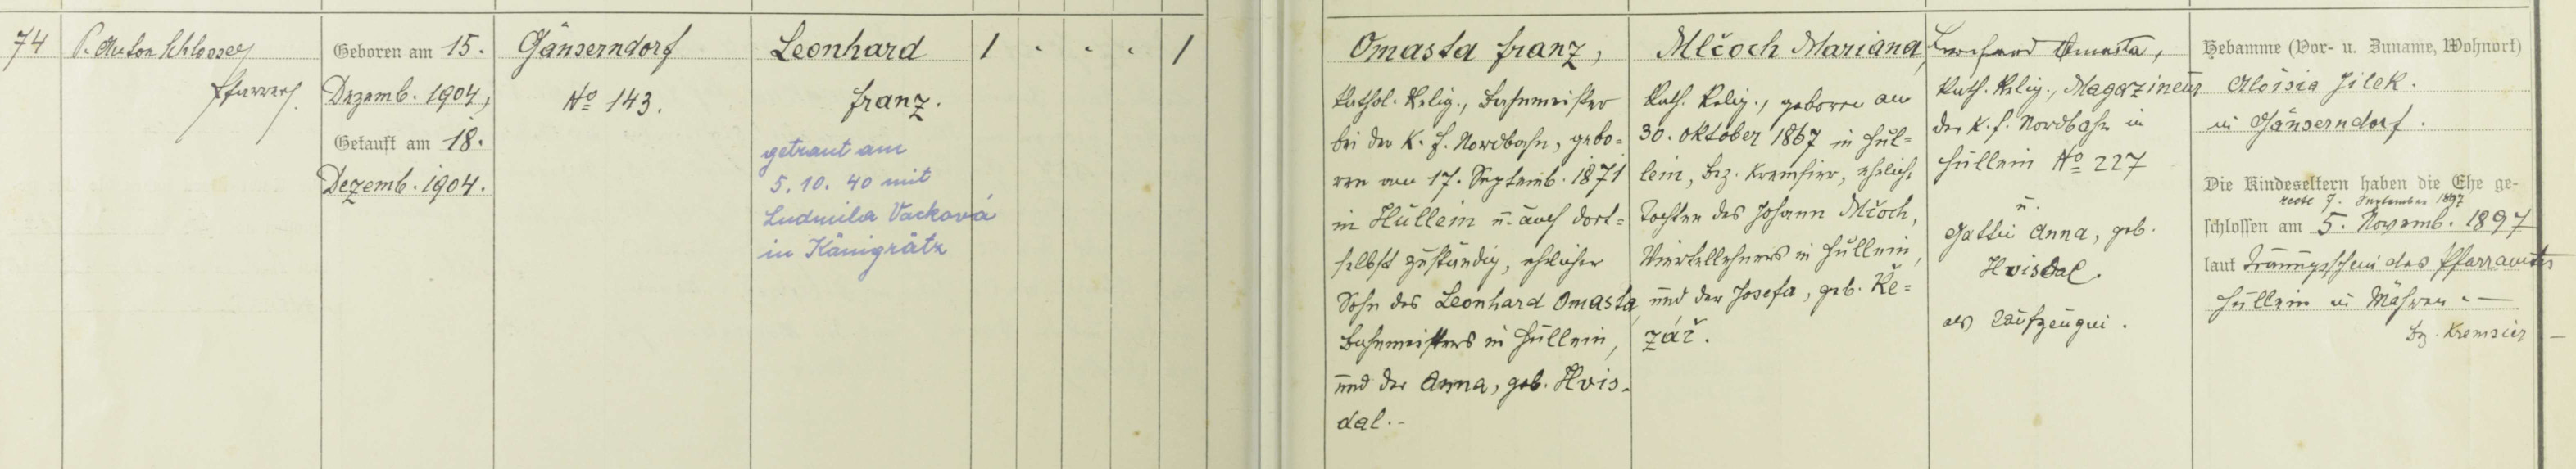 74
P. Anton Schlosser
Pfarrer
Geboren am 15.
Dezemb. 1904,
Getauft am 18.
Dezemb. 1904.
Gänserndorf
No 143.
Leonhard
Franz.
getraut am
5. 10. 40 mit
Ludmila Vacková
in Königrätz
1 " " " 1
Omasta Franz,
kathol. Relig., Bahnmeister
bei der K. F. Nordbahn, gebo=
ren am 17. Septemb. 1871
in Hullein u. auch dort=
selbst zuständig, ehelicher
Sohn des Leonhard Omasta,
Bahnmeisters in Hullein,
und der Anna, geb. Hvis-
dal.-
Mlčoch Mariana,
kath. Relig., geboren am
30. Oktober 1867 in Hul=
lein, Bez. Kremsier, ehelich.
Tochter des Johann Mlčoch,
Viertellehners in Hullein,
und der Josefa, geb. Ře=
záč.
Leonhard Omasta,
kath. Relig., Magazineur
der K. F. Nordbahn in
Hullein No 227
u.
Gattin Anna, geb.
Hvisdal
als Taufzeugen.
Hebamme (Vor- u. Zuname, Wohnort)
Aloisia Jilek.
in Gänserndorf.
Die Kindeseltern haben die Ehe ge-
recte 7. September 1897
schlossen am 5. Novemb. 1897
laut Trauungsschein des Pfarramtes
Hullein in Mähren.—
Bz. Kremsier